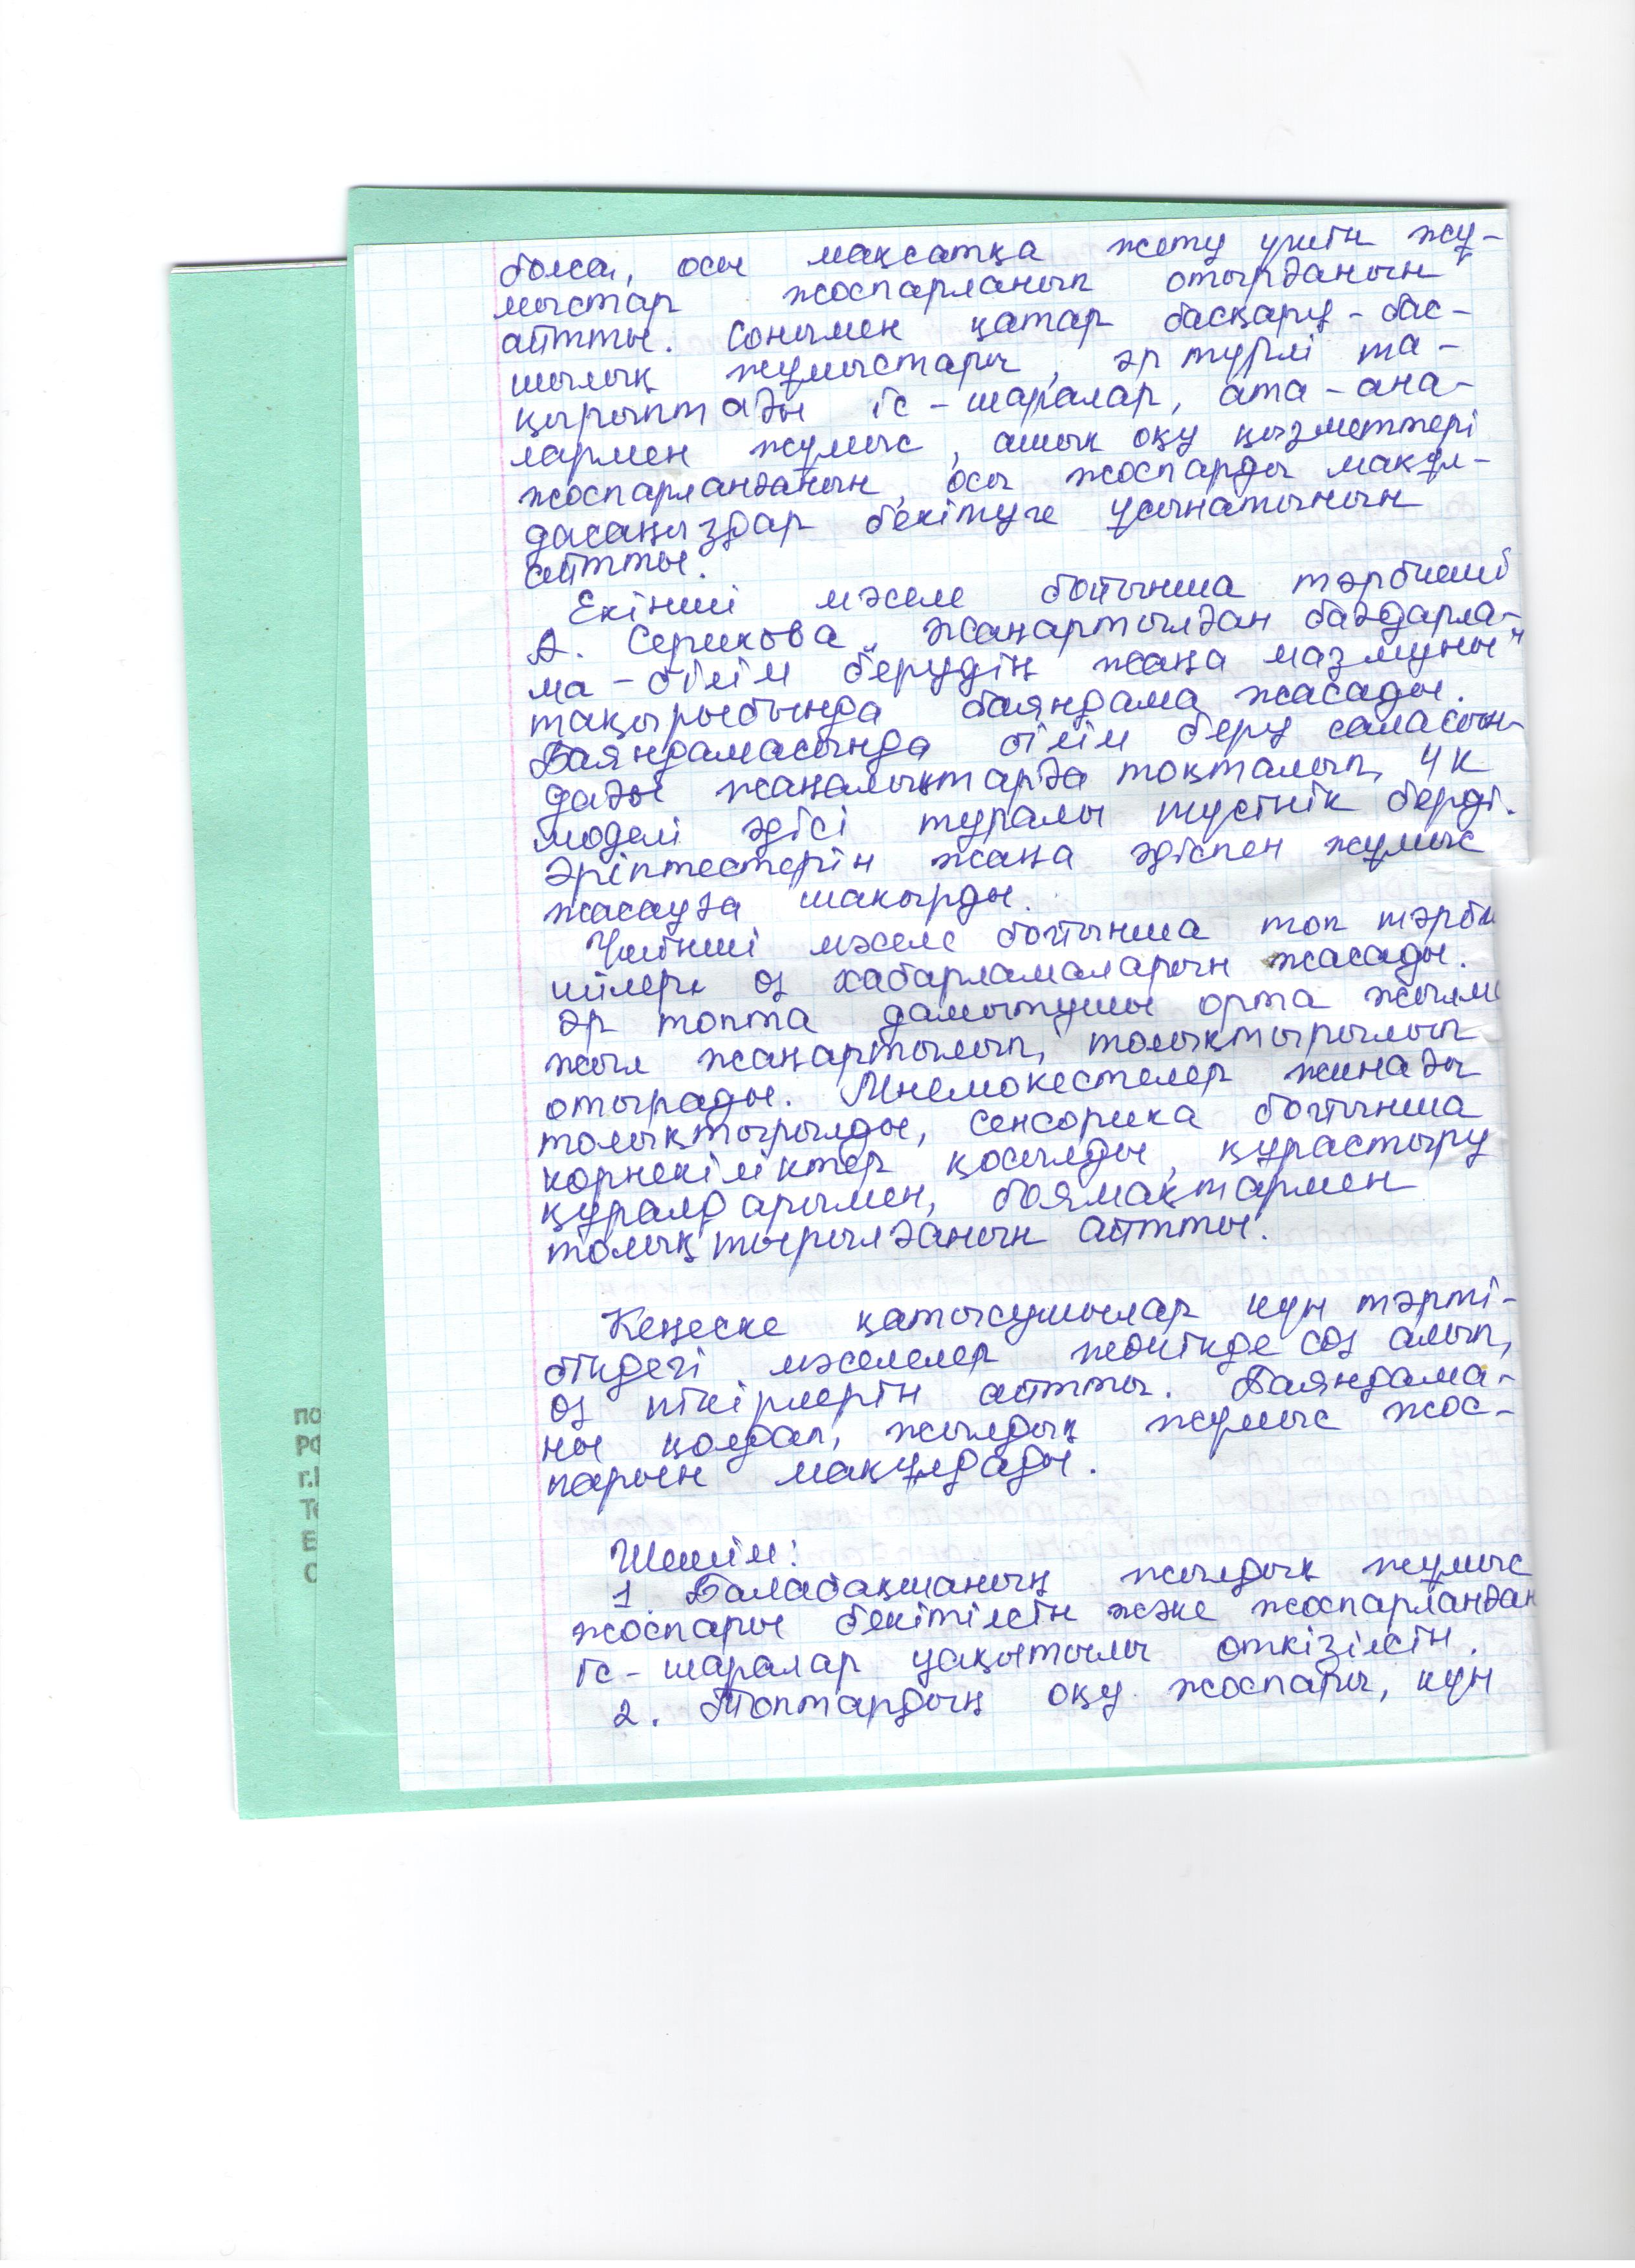 болса, осы мақсатқа жету үшін жұ-
мыстар жоспарланып отырғанын
айтты. Сонымен қатар басқару-бас-
шылық жұмыстары, әр түрлі та-
қырыптағы іс-шаралар, ата-ана-
лармен жұмыс, ашық оқу қызметтері
жоспарланғанын, осы жоспарды мақұл-
дасаңыздар бекітуге ұсынатынын
айтты.
Екінші мәселе бойынша тәрбиеші
А. Серикова „Жаңартылған бағдарла-
ма-білім берудің жаңа мазмұны"
тақырыбында баяндама жасады.
Баяндамасында білім беру саласын-
дағы жаңалықтарға тоқталып, 4К
моделі әдісі туралы түсінік берді.
Әріптестерін жаңа әдіспен жұмыс
жасауға шақырды.
Үшінші мәселе бойынша топ тәрби
шілері өз хабарламаларын жасады.
Әр топта дамытушы орта жылма
жыл жаңартылып, толықтырылып
отырады. Мнемокестелер жинағы
толықтырылды, сенсорика бойынша
көрнекіліктер қосылды, құрастыру
құралдарымен, боямақтармен
толықтырылғанын айтты.
Кеңеске қатысушылар күн тәрті-
біндегі мәселелер жөнінде сөз алып,
өз пікірлерін айтты. Баяндама-
ны қолдап, жылдық жұмыс жос-
парын мақұлдады.
Шешім:
1. Балабақшаның жылдық жұмыс
жоспары бекітілсін және жоспарланған
іс-шаралар уақытылы өткізілсін.
2. Топтардың оқу жоспары, күн
ПО
РО
г.
Т
Е
С